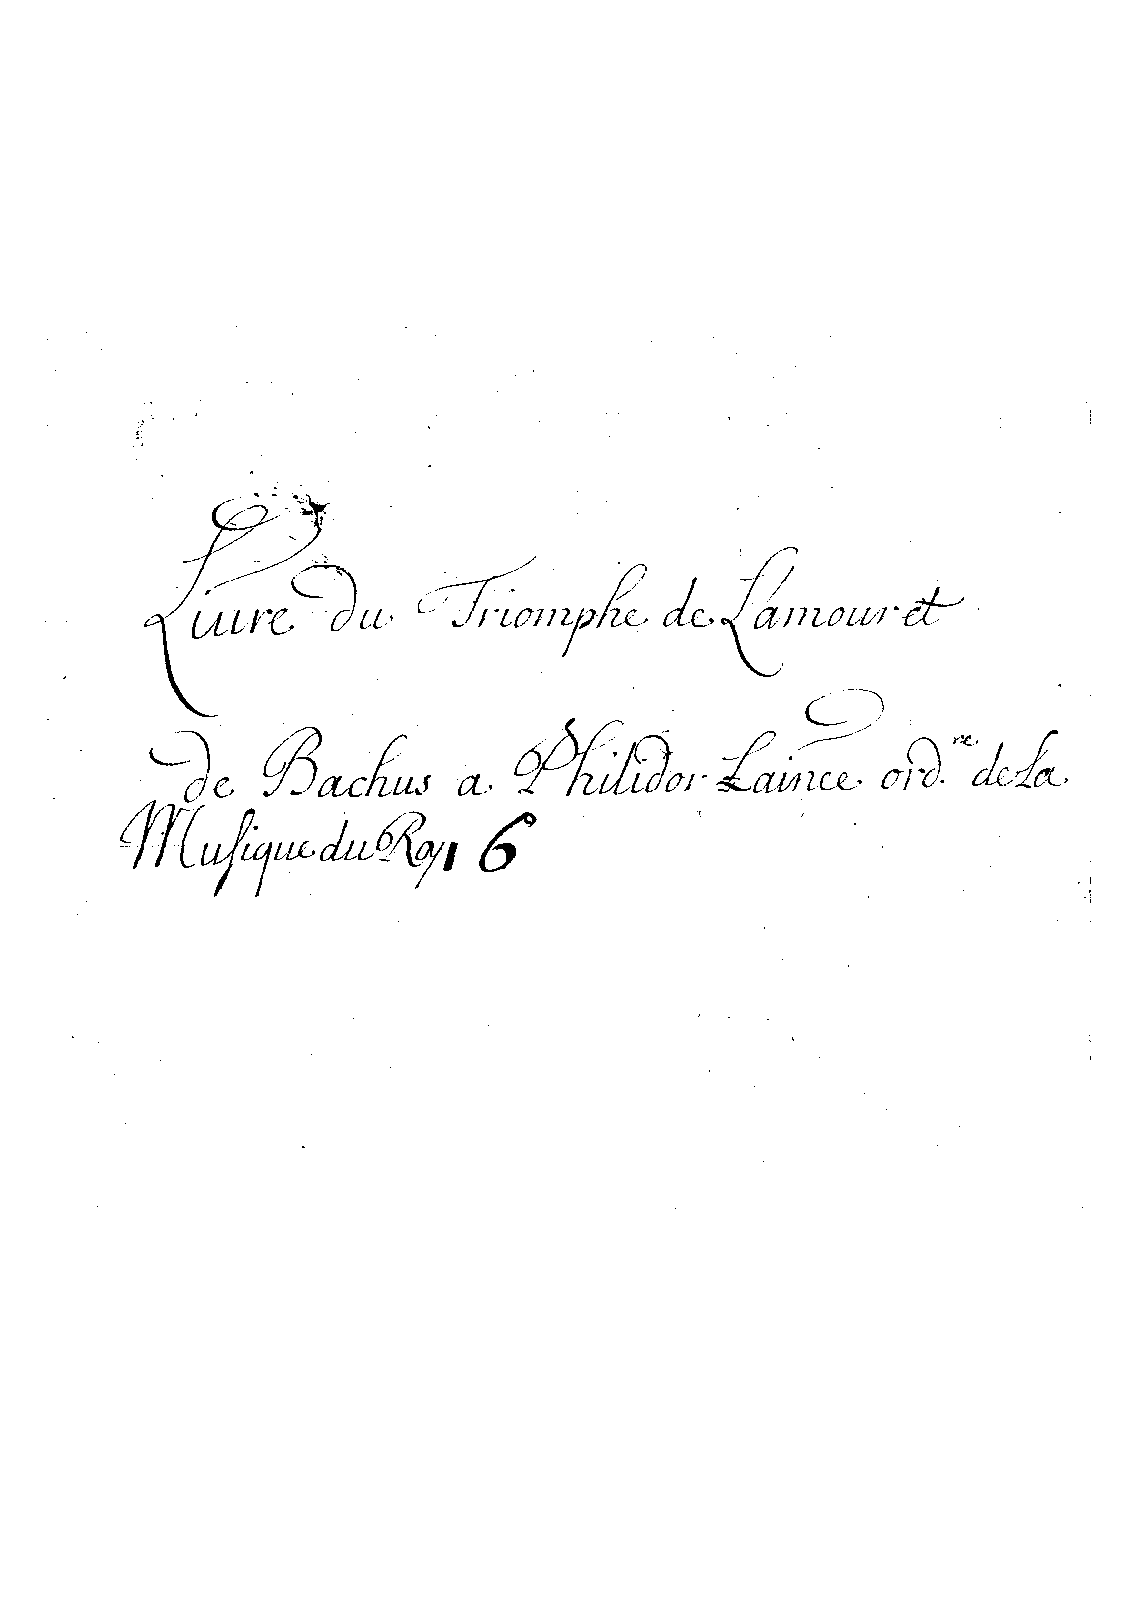 Liure du Triomphe de Lamour et
de Bachus a Philidor Laince ord.re de La
Musique du Roy 6